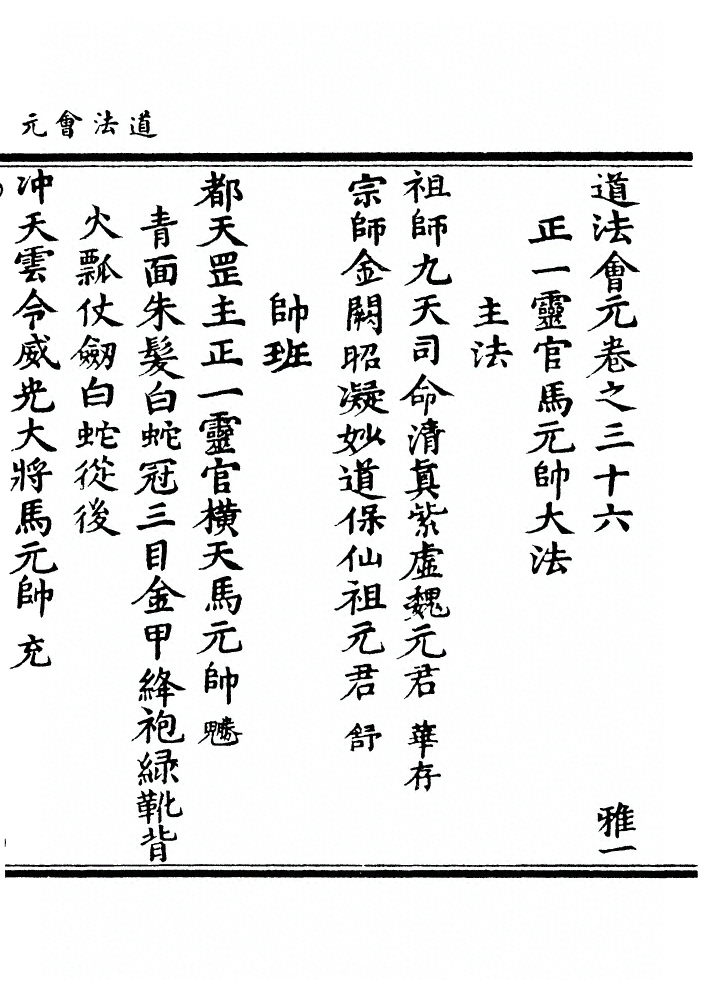 道法會元
道法會元卷之三十六　雅一
正一靈官馬元帥大法
主法
祖師九天司命清真紫虛魏元君　華存
宗師金闕昭凝妙道保仙祖元君　舒
帥班
都天罡主正一靈官橫天馬元帥
青面朱髮白蛇冠三目金甲絳袍綠靴背
火瓢仗劒白蛇從後
冲天雲令威光大將馬元帥　充